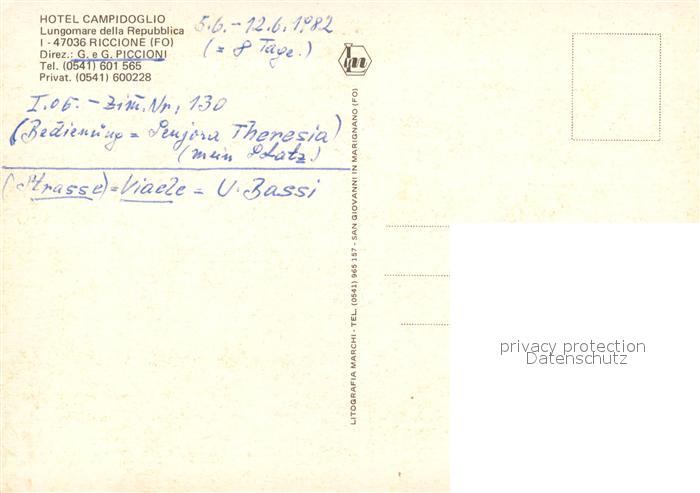 HOTEL CAMPIDOGLIO
Lungomare della Repubblica
I - 47036 RICCIONE (FO)
Direz.: G. e G. PICCIONI
Tel. (0541) 601 565
Privat. (0541) 600228
5.6. - 12.6.1982
(= 8 Tage.)
- Zim. Nr. 130
(Bedienung = Senjora Theresia)
(mein Platz.)
(Strasse) = Viale = U. Bassi
LITOGRAFIA MARCHI - TEL. (0541) 965 157 - SAN GIOVANNI IN MARIGNANO (FO)
privacy protection
Datenschutz